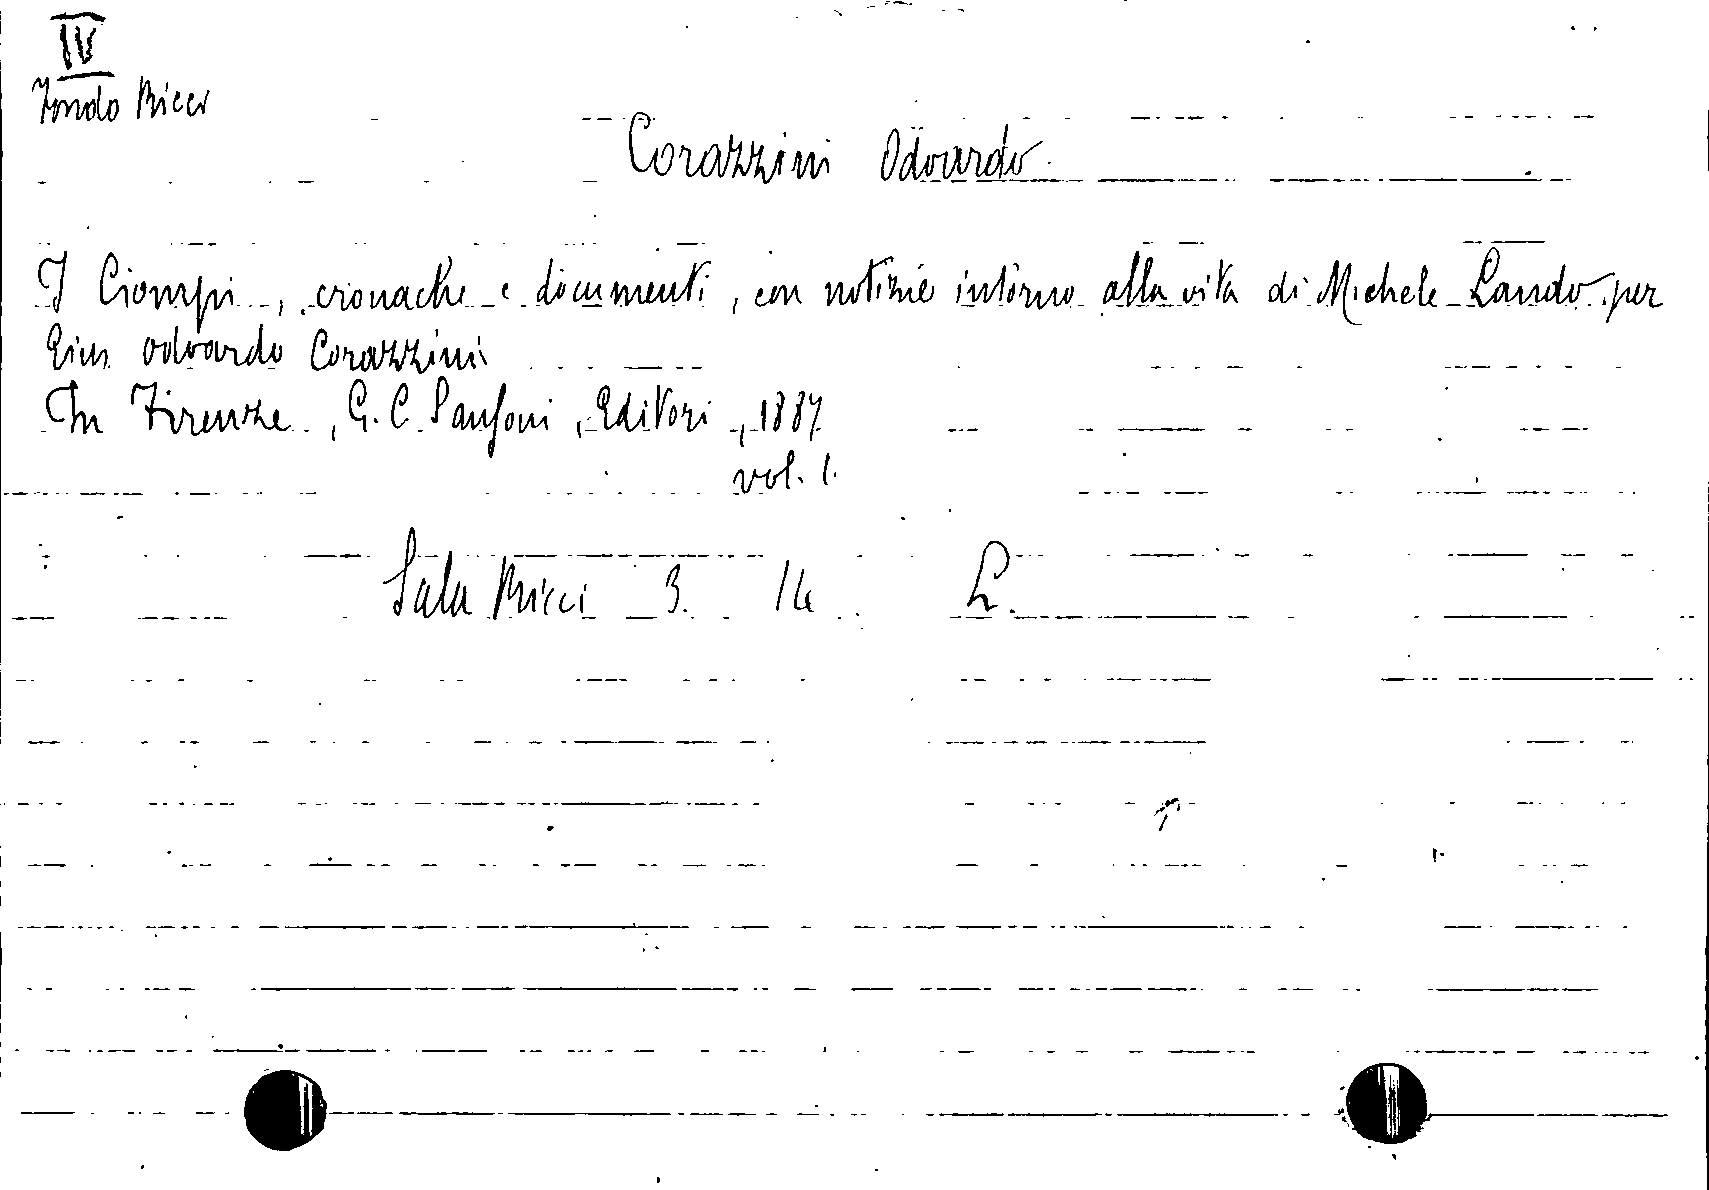 IV
Fondo Ricci
Corazzini Odoardo
I Ciompi, cronache e documenti, con notizie intorno alla vita di Michele Lando per
Odoardo Corazzini
In Firenze, G. C. Sansoni, Editori, 1887
vol. 1.
Sala Ricci 3. 14 L.